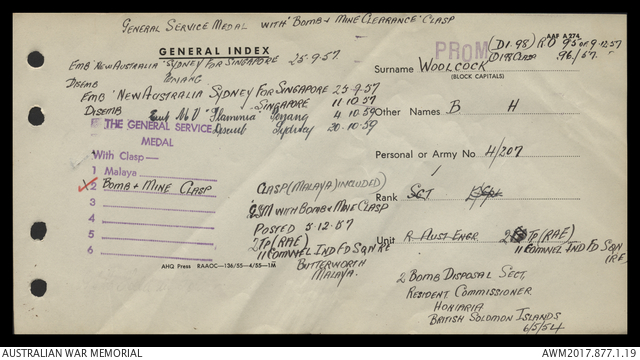 GENERAL SERVICE MEDAL WITH "BOMB + MINE CLEARANCE" CLASP
AAF A 274
GENERAL INDEX
PROM (D1.98) RO 95 OF 9.12.57
D198 CLASP 96/57.
EMB "NEW AUSTRALIA" SYDNEY FOR SINGAPORE 25-9-57.
Surname WOOLCOCK
(BLOCK CAPITALS)
DISEMB PENANG
EMB "NEW AUSTRALIA SYDNEY FOR SINGAPORE 25-9-57
DISEMB SINGAPORE 11 10.57
Emb MV "Flaminia" Penang 4.10.59
Other Names B H
THE GENERAL SERVICE MEDAL
Disemb Sydney 20-10-59
With Clasp—
Personal or Army No 4/207
1 Malaya
2 BOMB + MINE CLASP
CLASP (MALAYA) INCLUDED)
Rank SGT
3
GSM WITH BOMB + MINE CLASP
4
POSTED 5-12-57
5
2 TP (RAE)
Unit R. AUST. ENGR. 2 TP (RAE)
6
11 COMNWEL IND FD SQN RE
11 COMNWEL IND FD SQN
RE
BUTTERWORTH
MALAYA.
AHQ Press RAAOC—136/55—4/55—1M
2 BOMB DISPOSAL SECT.
RESIDENT COMMISSIONER
HONIARIA
BRITISH SOLOMON ISLANDS
6/5/54
AUSTRALIAN WAR MEMORIAL
AWM2017.877.1.19